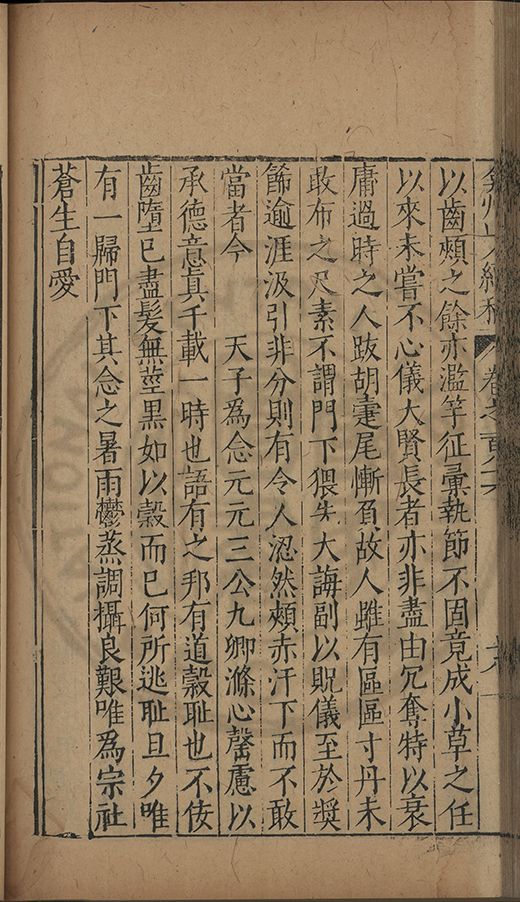 以齒頰之餘亦濫竽征彙執節不固竟成小草之任
以來未嘗不心儀大賢長者亦非盡由冗奪特以衰
庸過時之人跋胡疐尾慚負故人雖有區區寸丹未
敢布之尺素不謂門下猥先大誨副以貺儀至於獎
餙逾涯汲引非分則有令人涊然頰赤汗下而不敢
當者今　天子為念元元三公九卿滌心罄慮以
承德意真千載一時也語有之邦有道穀恥也不佞
齒墮已盡髮無莖黑如以穀而已何所逃恥旦夕唯
有一歸門下其念之暑雨鬱蒸調攝良艱唯為宗社
蒼生自愛